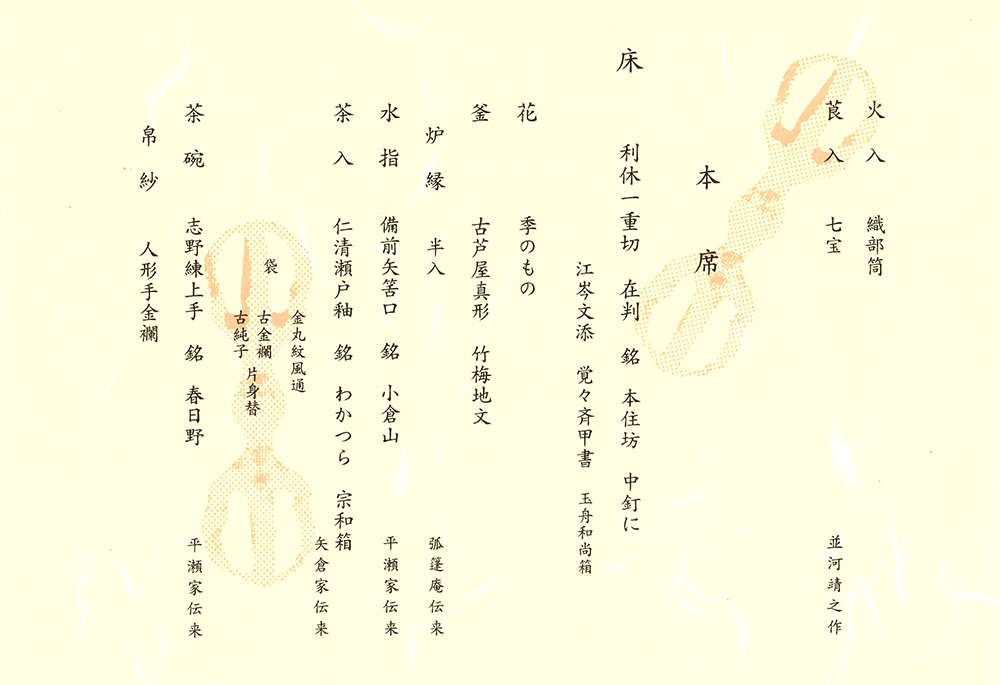 火入　織部筒
莨入　七宝　並河靖之作
本席
床　利休一重切　在判　銘　本住坊　中釘に
江岑文添　覚々斉甲書　玉舟和尚箱
花　季のもの
釜　古芦屋真形　竹梅地文
炉縁　半入　弧篷庵伝来
水指　備前矢筈口　銘　小倉山　平瀬家伝来
茶入　仁清瀬戸釉　銘　わかつら　宗和箱
矢倉家伝来
袋　金丸紋風通
古金襴
古純子　片身替
茶碗　志野練上手　銘　春日野　平瀬家伝来
帛紗　人形手金襴